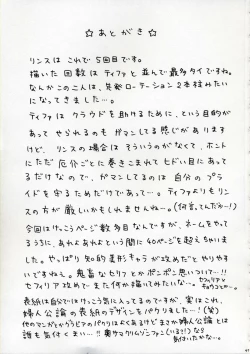 ☆あとがき☆
リンスは これで 5回目です。
描いた 回数は ティファと 並んで 最多タイですね。
なんか この二人は、先発ローテーション2本柱みたい
になってきました…。
ティファは クラウドを助けるために、という目的が
あって やられるのも ガマンしてる感じがあります
けど、リンスの場合は そういうのがなくて、ホント
にただ 厄介ごとに巻きこまれて ヒドい目にあって
るだけなので、ガマンしてるのは 自分の プラ
イドを守るためだけであって…。ティファよりもリン
スの方が 厳しいかもしれませんね…。(何言ってんだろー!)
今回はけっこうページ数が 目なんですが、ネームをやって
るうちに、あれよあれよという間に 40ページを超えちゃいま
した。やっぱり 知的変形キャラが攻めだとやりやす
いですねェ。鬼畜なセリフとかポンポン思いついて…!!
セフィリア攻めで また何か描いてみたいな…。
表紙は自分ではけっこう気に入ってるのですが、実はこれ、
婦人公論の表紙のデザインをパクりました…!(笑)
他のマンガとかラノベのパクりはよくあるけどまさか婦人公論とは
誰も気付くまい…!!